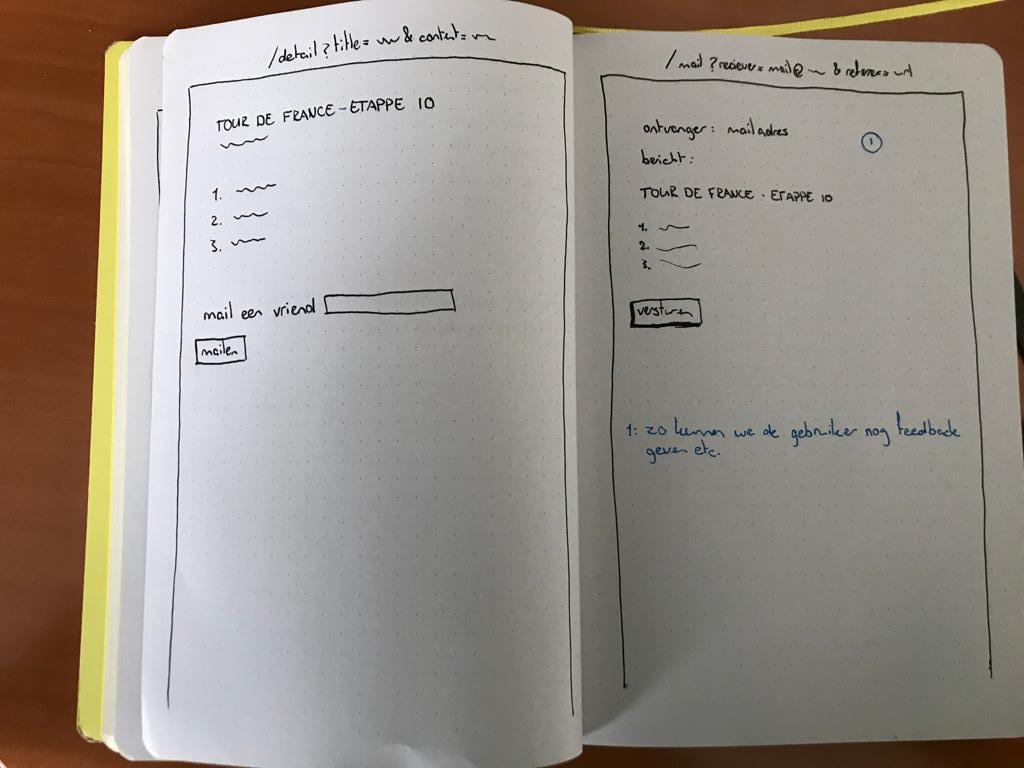 /detail?title= & content=
TOUR DE FRANCE - ETAPPE 10
1.
2.
3.
mail een vriend
mailen
/mail?reciever=mail@ & referer=url
ontvanger: mailadres
1
bericht:
TOUR DE FRANCE - ETAPPE 10
1.
2.
3.
versturen
1: zo kunnen we de gebruiker nog feedback
geven etc.